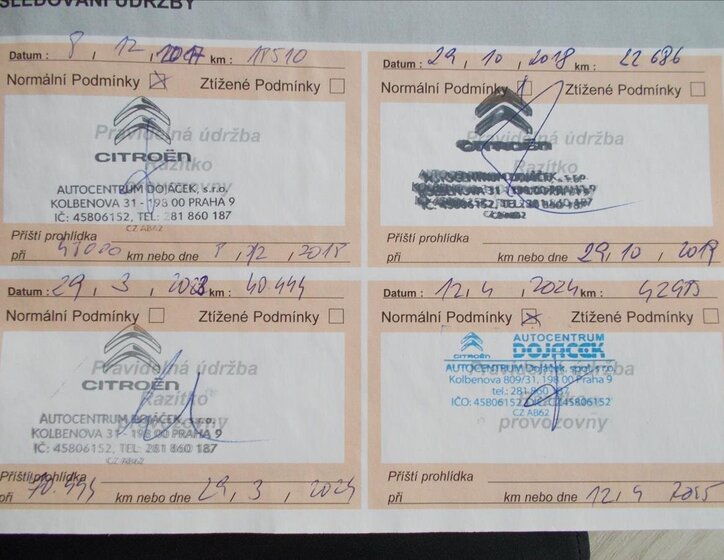 SLEDOVÁNÍ ÚDRŽBY
Datum : 8 / 12 / 2017 km : 18510
Normální Podmínky ☒ Ztížené Podmínky ☐
Pravidelná údržba
Razítko
CITROËN
AUTOCENTRUM DOJÁČEK, s.r.o.
KOLBENOVA 31 - 198 00 PRAHA 9
IČ: 45806152, TEL: 281 860 187
CZ AB62
Příští prohlídka
při km nebo dne 8 / 12 / 2018
Datum : 29 , 10 , 2018 km : 22 686
Normální Podmínky ☐ Ztížené Podmínky ☐
Pravidelná údržba
Razítko
CITROËN
AUTOCENTRUM DOJÁČEK, s.r.o.
KOLBENOVA 31 - 198 00 PRAHA 9
IČ: 45806152, TEL: 281 860 187
CZ AB62
Příští prohlídka
při km nebo dne 29, 10 , 2019
Datum : 29 , 3 , 2023 km : 40.444
Normální Podmínky ☐ Ztížené Podmínky ☐
Pravidelná údržba
Razítko
CITROËN
provozovny
AUTOCENTRUM DOJÁČEK, s.r.o.
KOLBENOVA 31 - 198 00 PRAHA 9
IČ: 45806152, TEL: 281 860 187
CZ AB62
Příští prohlídka
při 70.444 km nebo dne 29, 3 , 2024
Datum : 12, 4 , 2024 km :
Normální Podmínky ☒ Ztížené Podmínky ☐
AUTOCENTRUM
CITROËN DOJÁČEK
Pravidelná údržba
AUTOCENTRUM Dojáček, spol. s r.o.
Kolbenova 809/31, 198 00 Praha 9
Razítko
tel.: 281 860 187
IČO: 45806152, DIČ: CZ45806152
CZ AB62
provozovny
Příští prohlídka
při km nebo dne 12, 4 2025